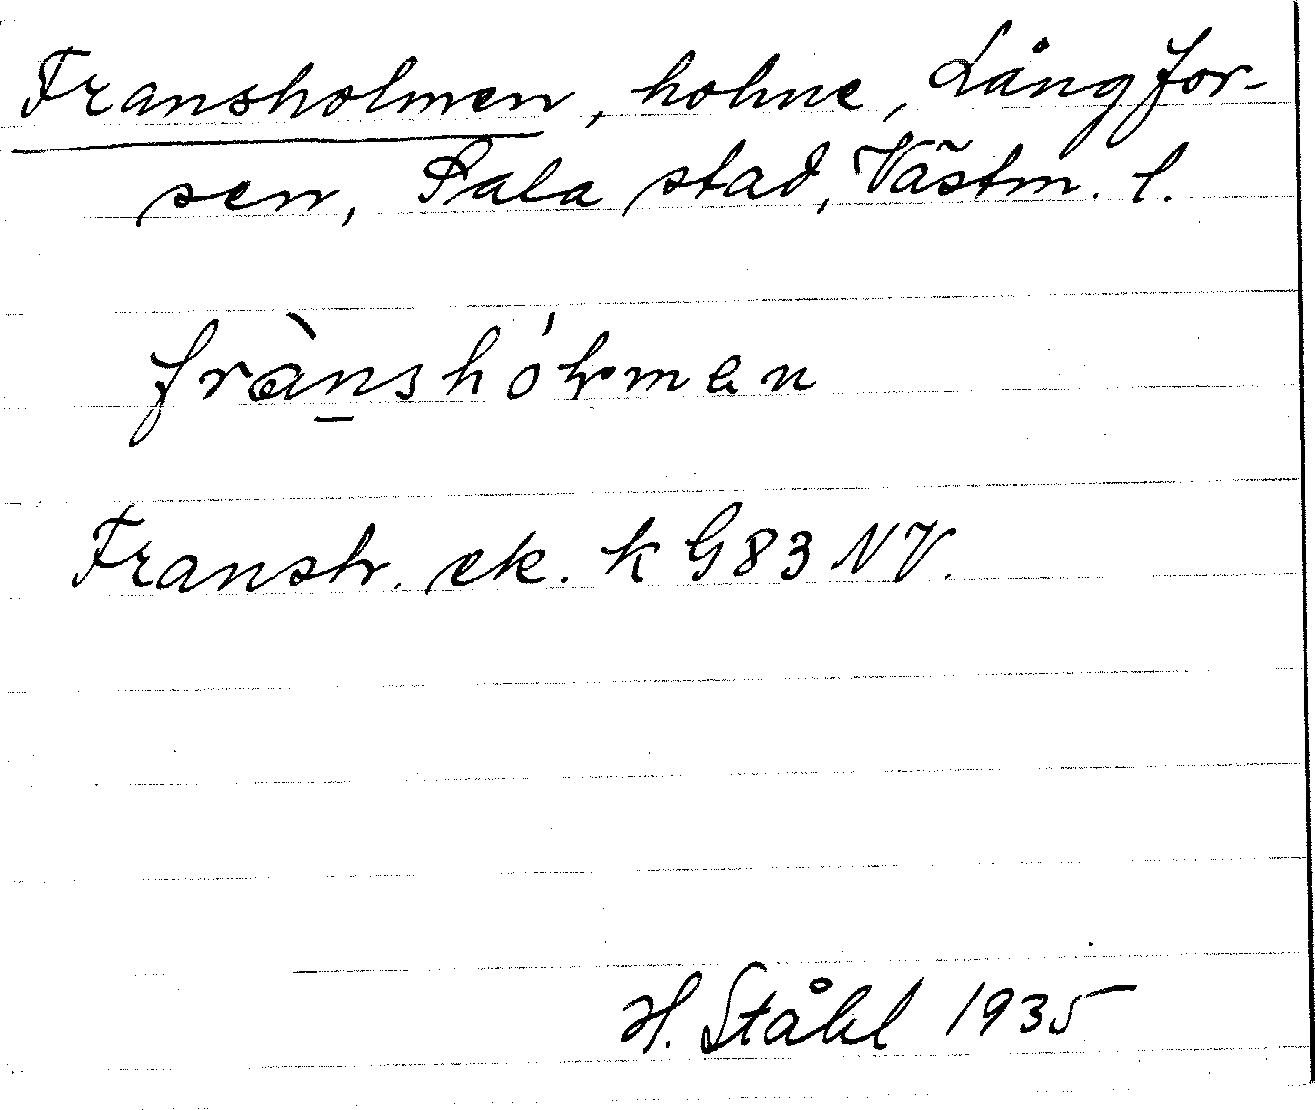 Fransholmen, holme, Långfor-
sen, Sala stad, Västm. l.
frànshólmen
Fransh. ek. k G83 NV.
H. Ståhl 1935